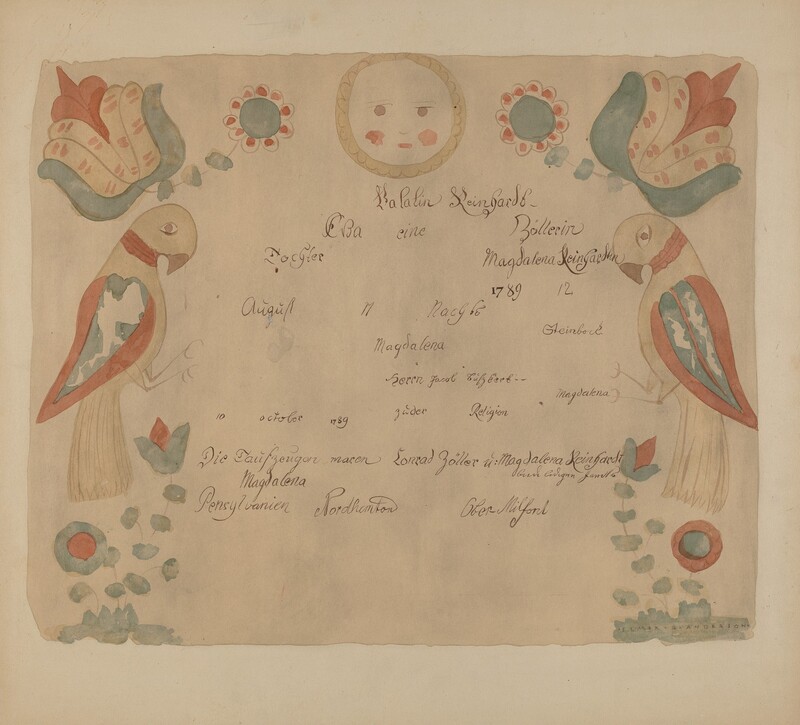 Valatin Reinhards
Eva eine Zöllerin
Tochter Magdalena Reinhardtin
1789 12
August 17 Nachts
Steinbock
Magdalena
Herrn Jacob
Magdalena
10 october 1789 zuder Religion
Die Taufzeugen waren Conrad Zöller u: Magdalena Reinhardt
Magdalena
Pensylvanien Nordhamton Ober Milford